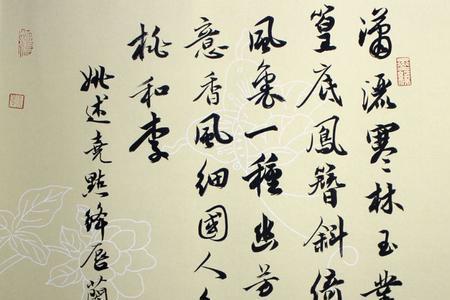 潇洒寒林玉丛
篁底凤簪斜倚
风气一种幽芳
意香风细国人
桃和李
姚述尧点绛唇兰